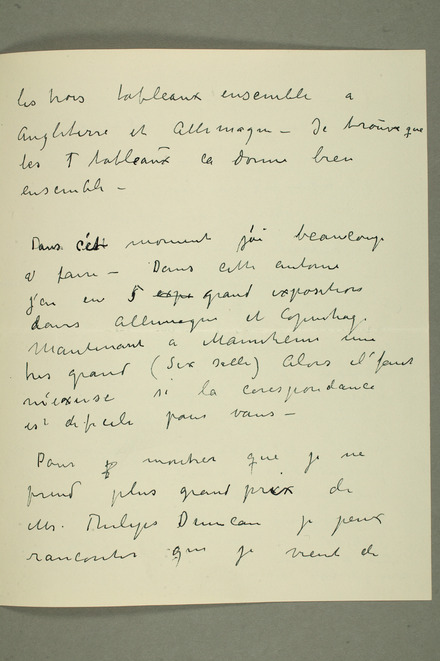 les trois tableaux ensemble a
Angleterre et Allemagne - Je trouve que
les tableaux ca donne bien
ensemble -
Dans cett moment j'ai beaucoup
a faire - Dans cette automne
j'en en 5 expo grand expositions
dans Allemagne et Copenhag.
Maintenant a Mannheim une
tres grand (Six salle) Alors il faut
m'excuse si la corespondance
est dificile pour vous -
Pour montrer que je ne
prend plus grand prix de
Mr. Philips Duncan je peux
raconter que je vient de